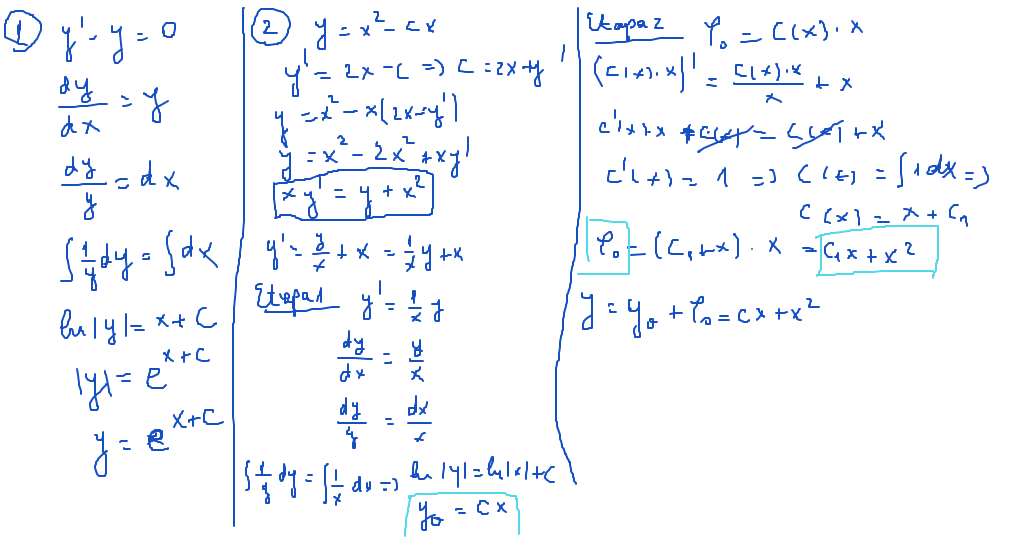 ① y' - y = 0
dy/dx = y
dy/y = dx
∫ 1/y dy = ∫ dx
ln |y| = x + C
|y| = e^(x+C)
y = e^(x+C)
② y = x² - cx
y' = 2x - c => c = 2x + y'
y = x² - x(2x - y')
y = x² - 2x² + xy'
xy' = y + x²
y' = y/x + x = 1/x y + x
Etapa 1 y' = 1/x y
dy/dx = y/x
dy/y = dx/x
∫ 1/y dy = ∫ 1/x dx => ln |y| = ln |x| + C
y₀ = cx
Etapa 2 φ₀ = C(x) · x
(C(x) · x)' = C(x) · x / x + x
C'(x) x + C(x) = C(x) + x
C'(x) = 1 => C(x) = ∫ 1 dx =>
C(x) = x + C₁
φ₀ = (C₁ + x) · x = C₁x + x²
y = y₀ + φ₀ = cx + x²